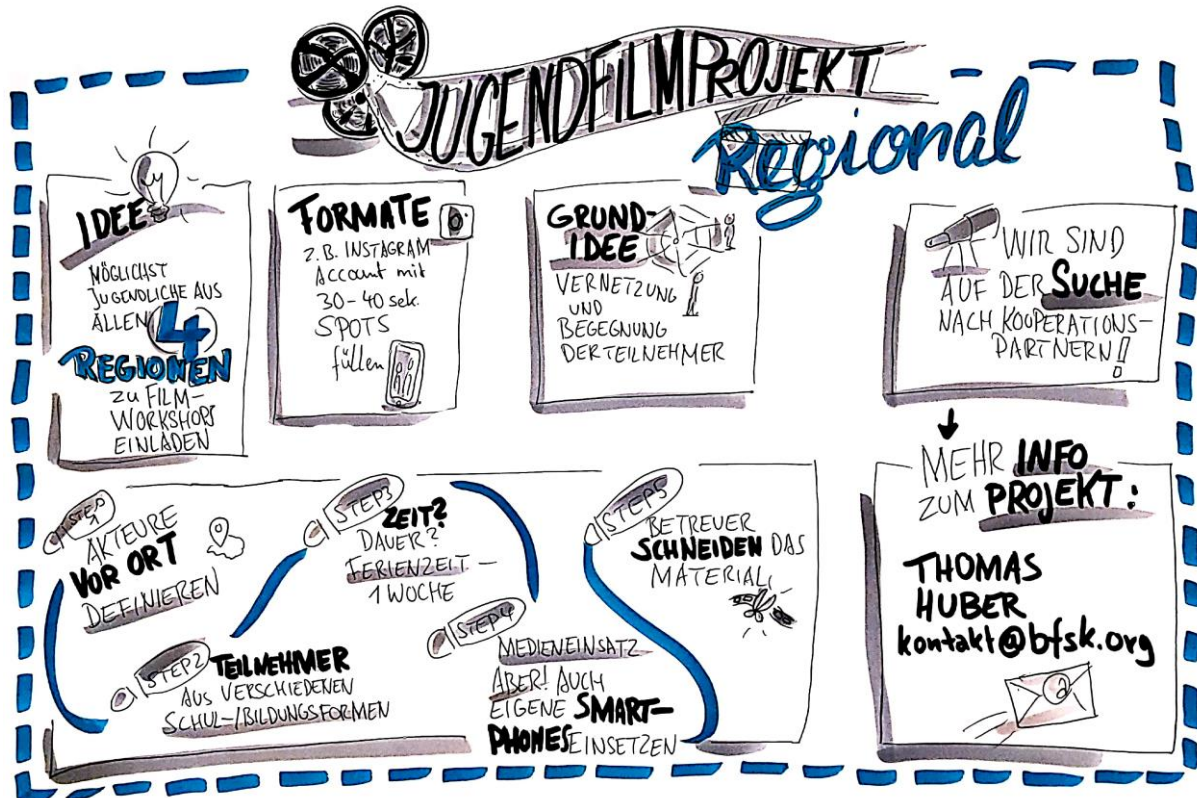 JUGENDFILMPROJEKT
Regional
IDEE
MÖGLICHST
JUGENDLICHE AUS
ALLEN 4
REGIONEN
ZU FILM-
WORKSHOPS
EINLADEN
FORMATE
Z.B. INSTAGRAM
Account mit
30-40 sek.
SPOTS
füllen
GRUND-
IDEE
VERNETZUNG
UND
BEGEGNUNG
DER TEILNEHMER
WIR SIND
AUF DER SUCHE
NACH KOOPERATIONS-
PARTNERN!
MEHR INFO
ZUM PROJEKT:
THOMAS
HUBER
kontakt@bfsk.org
@
STEP 1
AKTEURE
VOR ORT
DEFINIEREN
STEP 2
TEILNEHMER
AUS VERSCHIEDENEN
SCHUL-/BILDUNGSFORMEN
STEP 3
ZEIT?
DAUER?
FERIENZEIT –
1 WOCHE
STEP 4
MEDIENEINSATZ
ABER! AUCH
EIGENE SMART-
PHONES EINSETZEN
STEP 5
BETREUER
SCHNEIDEN DAS
MATERIAL